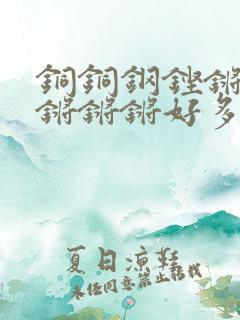 銅銅鋼鏗鏘
鏘鏘鏘好多
夏日涼鞋
未经同意禁止转载